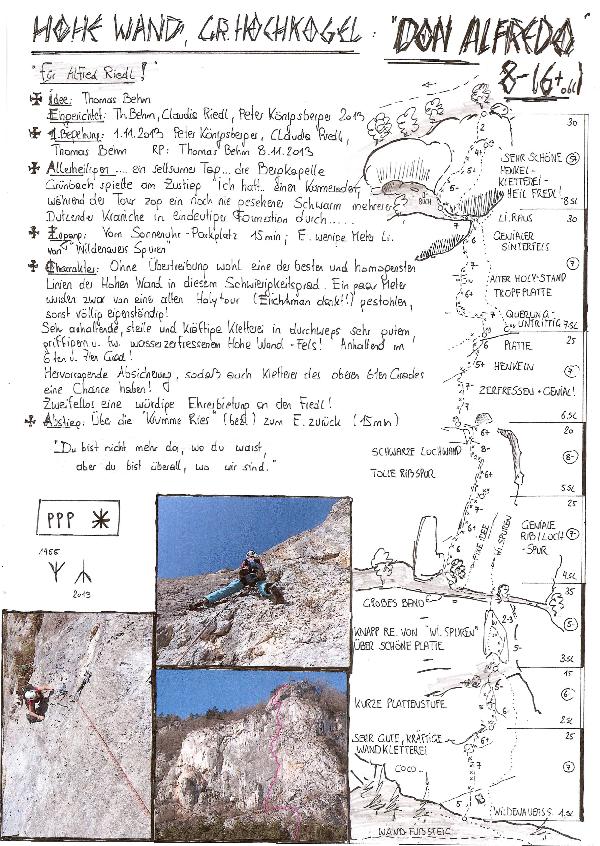 HOHE WAND, GR. HOCHKOGEL: "DON ALFREDO"
8-/6+ obl.
"für Alfred Riedl!"
Idee: Thomas Behm
Eingerichtet: Th. Behm, Claudia Riedl, Peter Königsberger 2013
1. Begehung: 1.11.2013 Peter Königsberger, Claudia Riedl,
Thomas Behm RP: Thomas Behm 8.11.2013
Allerheiligen .... ein seltsamer Tag... die Bergkapelle
Grünbach spielte am Zustieg "Ich hatt einen Kameraden",
während der Tour zog ein noch nie gesehener Schwarm mehrerer
Dutzender Kraniche in eindeutiger Formation durch.....
Zugang: Vom Sonnenuhr-Parkplatz 15min; E. wenige Meter li.
von "Wildenauer Spuren"
Charakter: Ohne Übertreibung wohl eine der besten und homogensten
Linien der Hohen Wand in diesem Schwierigkeitsgrad. Ein paar Meter
wurden zwar von einer alten Holytour (Elichtman dank!!) gestohlen,
sonst völlig eigenständig!
Sehr anhaltende, steile und kräftige Kletterei in durchwegs sehr gutem,
griffigen u. tw. wasserzerfressenen Hohe Wand - Fels! Anhaltend im
6ten u. 7ten Grad!
Hervorragende Absicherung, sodaß auch Kletterer des oberen 6ten Grades
eine Chance haben!
Zweifellos eine würdige Ehrerbietung an den Fredl!
Abstieg: Über die "Krumme Ries" (bez.) zum E. zurück (15min)
"Du bist nicht mehr da, wo du warst,
aber du bist überall, wo wir sind."
PPP
1966
2013
30
SEHR SCHÖNE
HENKEL-
KLETTEREI-
HEIL FREDL!
7
8.SL
BUCH
LI. RAUS
30
GENIALER
SINTERFELS
7
ALTER HOLY-STAND
TROPFPLATTE
QUERUNG
UNTRITTIG
7.SL
PLATTE
25
HENKELN
7
ZERFRESSEN - GENIAL!
6.SL
20
SCHWARZE LOCHWAND
8-
TOLLE RIßSPUR
5.SL
25
WI. SPUREN
GENIALE
RIß/LOCH-
SPUR
7
4.SL
35
GROßES BAND
5-
KNAPP RE. VON "WI. SPUREN"
ÜBER SCHÖNE PLATTE
2-3
3.SL
15
KURZE PLATTENSTUFE
6-
2.SL
25
SEHR GUTE, KRÄFTIGE
WANDKLETTEREI
7
COCO
WILDENAUER S.
1.SL
WANDFUßSTEIG